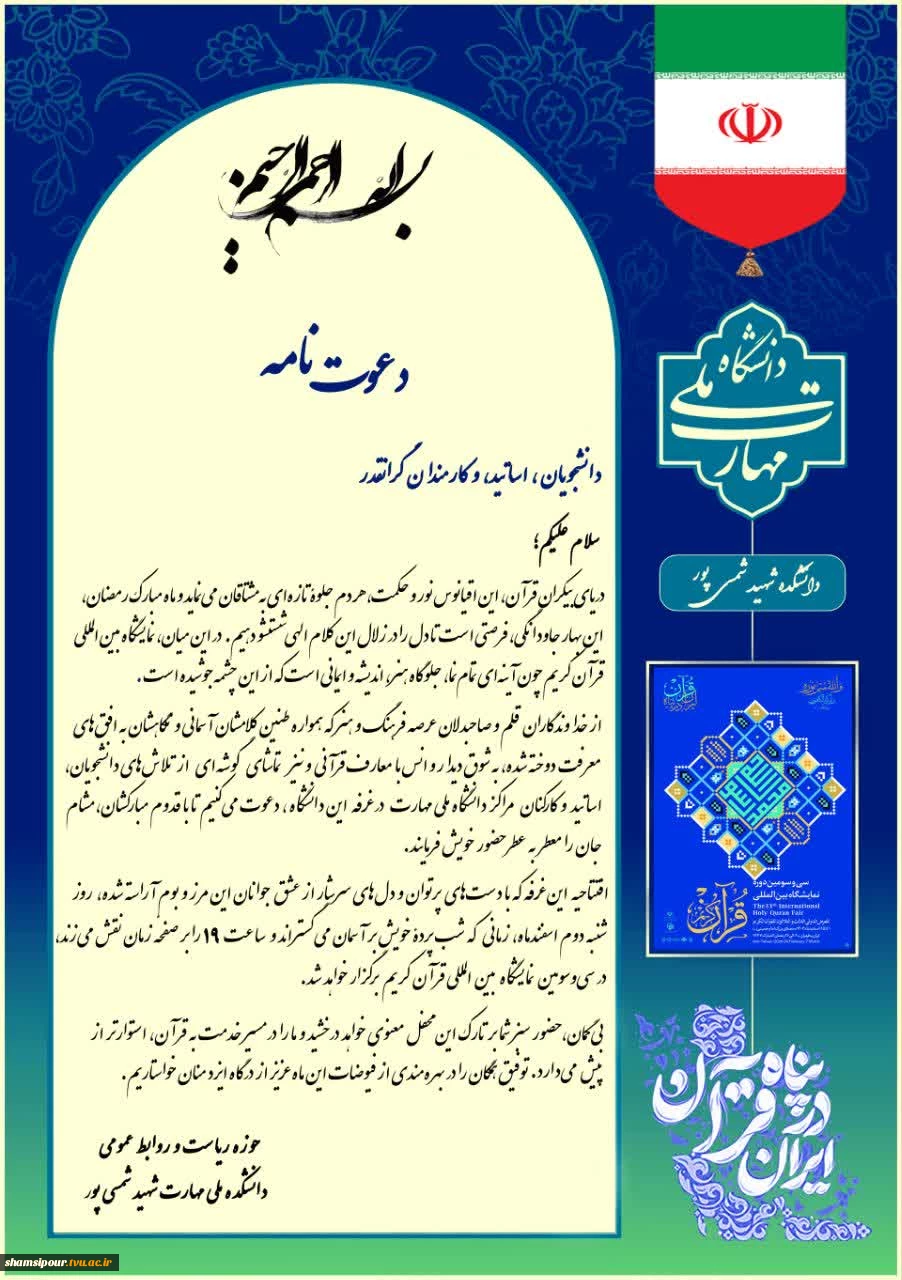 بسم الله الرحمن الرحیم
دعوت نامه
دانشجویان، اساتید، و کارمندان گرانقدر
سلام علیکم؛
دریای بیکران قرآن، این اقیانوس نور و حکمت، هر دم جلوهٔ تازه ای به مشتاقان می نماید و ماه مبارک رمضان،
این بهار جاودانگی، فرصتی است تا دل را در زلال این کلام الهی شستشو دهیم. در این میان، نمایشگاه بین المللی
قرآن کریم چون آینه ای تمام نما، جلوگاه هنر، اندیشه و ایمانی است که از این چشمه جوشیده است.
از خداوندکاران قلم و صاحبدلان عرصه فرهنگ و هنر که همواره طنین کلامشان آسمانی و نگاهشان به افق های
معرفت دوخته شده، به شوق دیدار و انس با معارف قرآنی و نیز تماشای گوشه ای از تلاش های دانشجویان،
اساتید و کارکنان مراکز دانشگاه ملی مهارت در غرفه این دانشگاه، دعوت می کنیم تا با قدوم مبارکشان، مشام
جان را معطر به عطر حضور خویش فرمایند.
افتتاحیه این غرفه که با دست های پرتوان و دل های سرشار از عشق جوانان این مرز و بوم آراسته شده، روز
شنبه دوم اسفندماه، زمانی که شب پردهٔ خویش بر آسمان می گستراند و ساعت ۱۹ را بر صفحه زمان نقش می زند،
در سی و سومین نمایشگاه بین المللی قرآن کریم برگزار خواهد شد.
بی گمان، حضور سبز شما بر تارک این محفل معنوی خواهد درخشید و ما را در مسیر خدمت به قرآن، استوارتر از
پیش می دارد. توفیق همگان را در بهره مندی از فیوضات این ماه عزیز از درگاه ایزد منان خواستاریم.
حوزه ریاست و روابط عمومی
دانشکده ملی مهارت شهید شمسی پور
دانشگاه
ملی
مهارت
دانشکده شهید شمسی پور
سی و سومین دوره
نمایشگاه بین المللی
The 33rd International
Holy Quran Fair
قرآن کریم
ایران در پناه قرآن
shamsipour.tvu.ac.ir